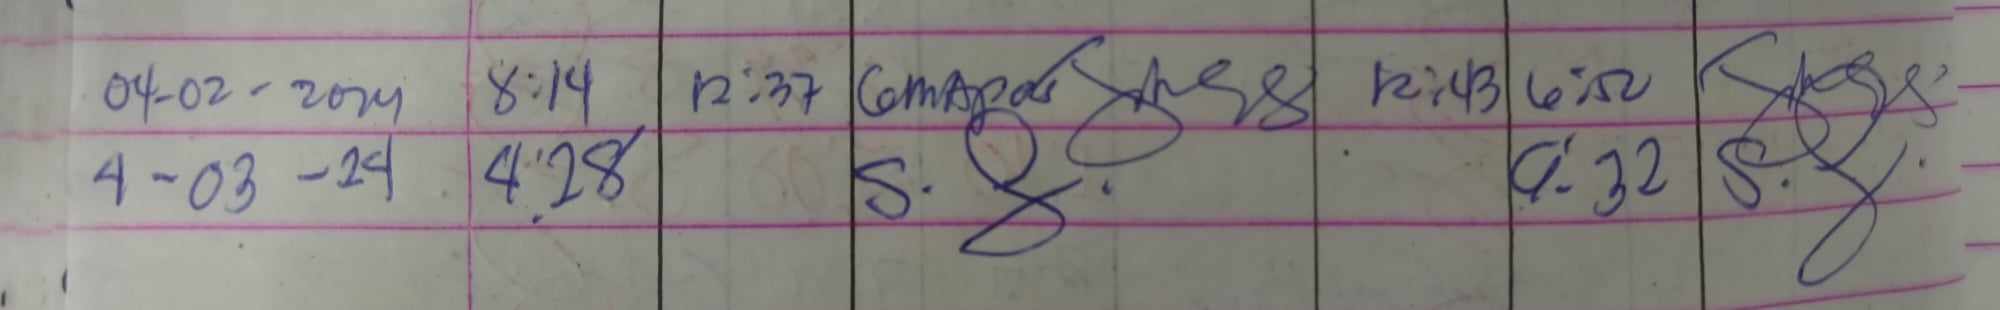 04-02-2024 8:14 12:37 12:43 6:52
4-03-24 4:28 S. 9:32 S.